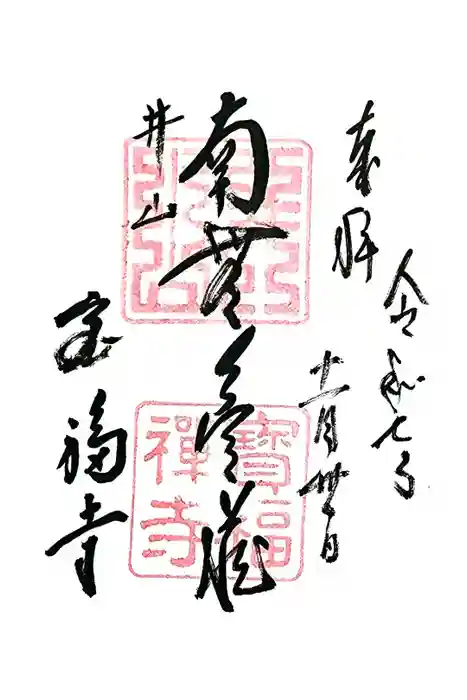 奉拝
令和七年
十一月卅日
南無虚空蔵
井山
宝福寺
寶福
禪寺